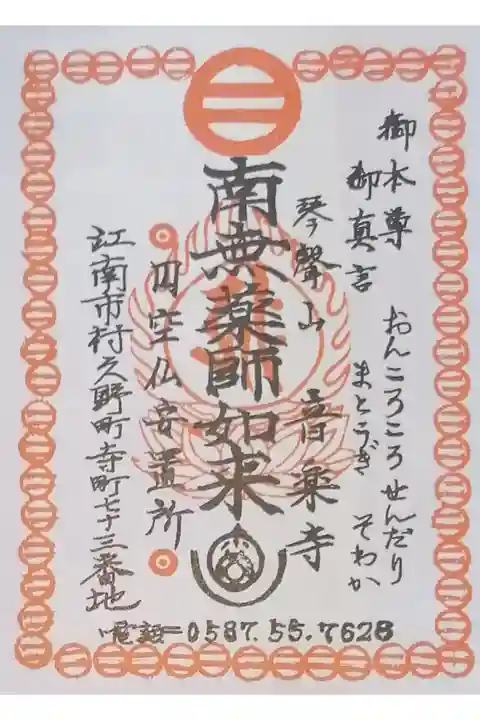 御本尊
御真言
おんころころせんだり
まとうぎ そわか
琴聲山 音楽寺
南無薬師如来
円空仏安置所
江南市村久野町寺町七十三番地
電話=0587.55.7628